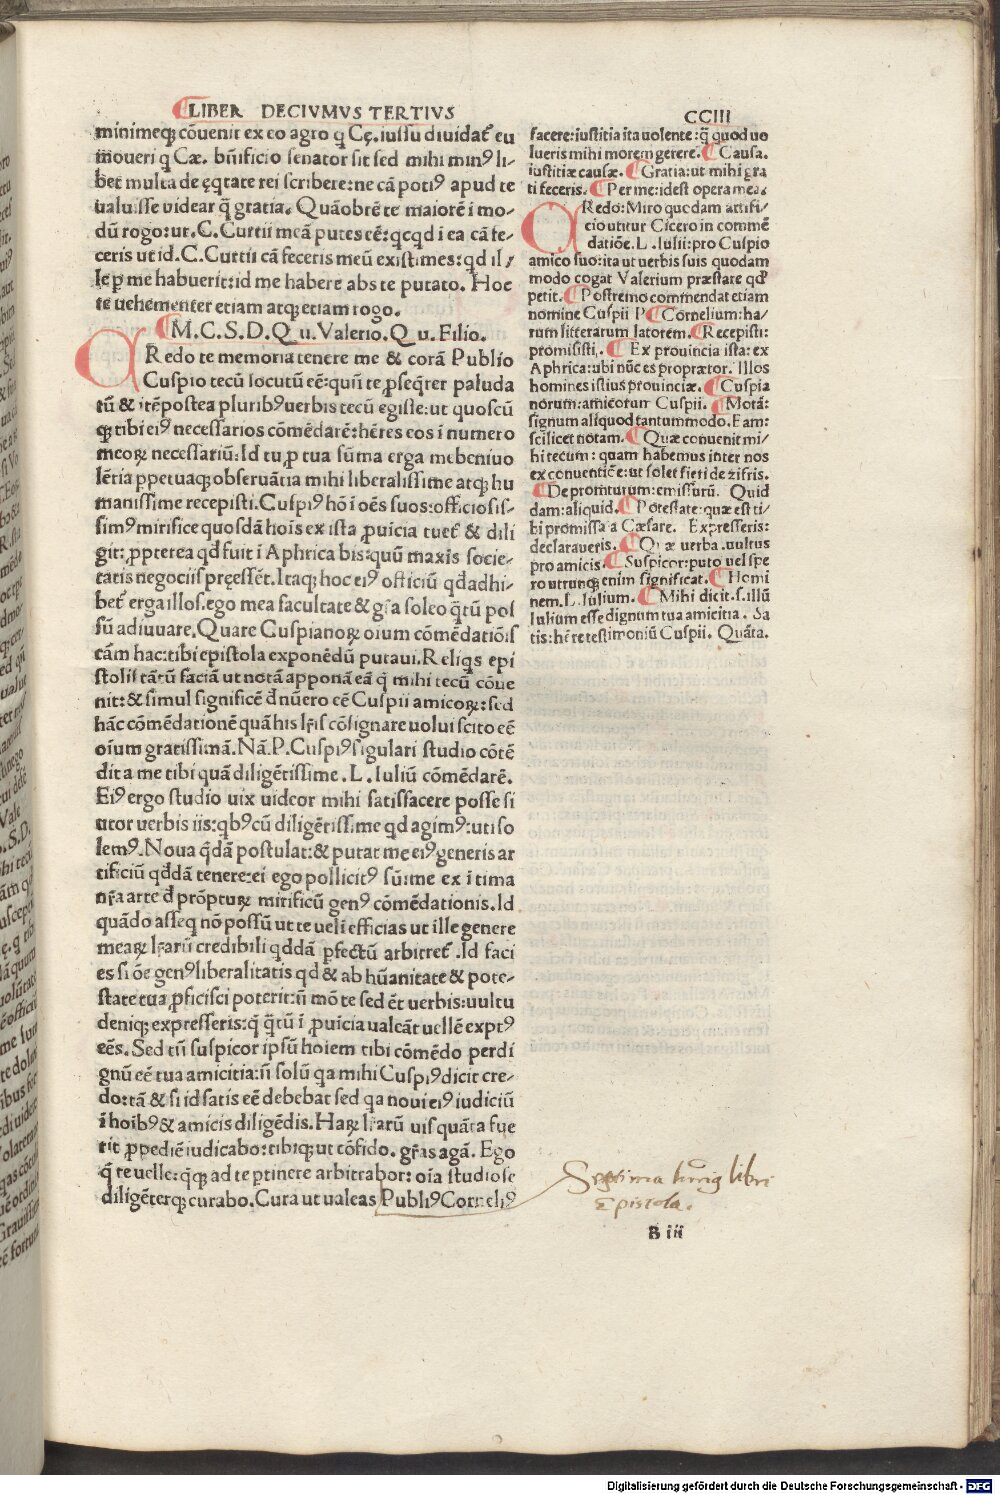 LIBER DECIVMVS TERTIVS
CCIII
minimeqꝫ cõuenit ex eo agro q̃ Cę. iussu diuidat᷑ eũ
moueri q Cæ. bñificio senator sit sed mihi minꝰ li-
bet multa de ęqtate rei scribere: ne cã potiꝰ apud te
ualuisse uidear q̃ gratia. Quãobrẽ te maiorẽ ĩ mo-
dũ rogo: ut. C. Curtii meã putes eẽ: qcqd i ea cã fe-
ceris ut id. C. Curtii cã feceris meũ existimes: qd il-
le ꝑ me habuerit: id me habere abs te putato. Hoc
te uehementer etiam atqꝫ etiam rogo.
M. C. S. D. Q u. Valerio. Q u. Filio.
REdo te memoria tenere me & corã Publio
Cuspio tecũ locutũ eẽ: quũ te ꝓseqrer paluda
tũ & itẽ postea pluribꝰ uerbis tecũ egisse: ut quoscũ
qꝫ tibi eiꝰ necessarios cõmẽdarẽ: hẽres eos ĩ numero
meoꝝ necessariũ: Id tu ꝓ tua sũma erga me beniuo
lẽtia ꝑpetuaqꝫ obseruãtia mihi liberalissime atqꝫ hu
manissime recepisti. Cuspiꝰ hõ ĩ oẽs suos: officiosis-
simꝰ mirifice quosdã hoĩs ex ista ꝓuĩcia tuet᷑ & dili
git: ꝓpterea qđ fuit ĩ Aphrica bis: quũ maxĩs socie-
tatis negociis pręessẽt. Itaqꝫ hoc eiꝰ officiũ qđ adhi-
bet᷑ erga illos. ego mea facultate & gr̃a soleo q̃tũ pos
sũ adiuuare. Quare Cuspianoꝝ oium cõmẽdatiõĩs
cãm hac: tibi epistola exponẽdũ putaui. Reliqs epi
stolis tãtũ faciã ut notã apponã eã q̃ mihi tecũ cõue
nit: & simul significẽ đ nũero eẽ Cuspii amicoꝝ: sed
hãc cõmẽdationẽ quã his lr̃is cõsignare uolui scito eẽ
oĩum gratissimã. Nã. P. Cuspiꝰ sĩgulari studio cõtẽ
dit a me tibi quã diligẽtissime. L. Iuliũ cõmẽdarẽ.
Eiꝰ ergo studio uix uideor mihi satisfacere posse si
utor uerbis iis: qbꝰ cũ diligẽtissime qd agimꝰ: uti so
lemꝰ. Noua q̃dã postulat: & putat me eiꝰ generis ar
tificiũ qđdã tenere: ei ego pollicitꝰ sũ: me ex ĩtima
nr̃a arte đ prõpturꝝ mirificũ genꝰ cõmẽdationis. Id
quãdo asseq nõ possũ ut te ueli efficias ut ille genere
meaꝝ lr̃arũ credibili qddã ꝑfectũ arbitret᷑. Id faci
es si õe genꝰ liberalitatis qd & ab hũanitate & pote-
state tua ꝓficisci poterit: ñ mõ te sed ẽt uerbis: uultu
deniqꝫ expresseris: q̃ q̃tũ ĩ ꝓuicia ualeãt uellẽ exptꝰ
eẽs. Sed tñ suspicor ipsũ hoiem tibi cõmẽdo perdi
gnũ eẽ tua amicitia: ñ solũ qa mihi Cuspiꝰ dicit cre-
do: tã & si id satis eẽ debebat sed qa noui eiꝰ iudiciũ
ĩ hoĩbꝰ & amicis diligẽdis. Haꝝ lr̃arũ uis quãta fue
rit ꝓpediẽ iudicabo: tibiqꝫ ut cõfido. gr̃as agã. Ego
q̃ te uelle: q̃qꝫ ad te ꝑtinere arbitrabor: oĩa studiose
diligẽterqꝫ curabo. Cura ut ualeas Publiꝰ Corneliꝰ
facere: iustitia ita uolente: q̃ quod uo
lueris mihi morem gererẽ. Causa.
iustitiæ causæ. Gratia: ut mihi gra
ti feceris. Per me: idest opera mea.
REdo: Miro quodam artifi-
cio utitur Cicero in commẽ
datiõe. L. Iulii: pro Cuspio
amico suo: ita ut uerbis suis quodam
modo cogat Valerium præstare qđ
petit. Postremo commendat etiam
nomine Cuspii P Cornelium: ha-
rum litterarum latorem. Recepisti:
promisisti. Ex prouincia ista: ex
Aphrica: ubi nũc es proprætor. Illos
homines istius prouinciæ. Cuspia
norum: amicorum Cuspii. Motã:
signum aliquod tantummodo. Eam:
scilicet notam. Quæ conuenit mi-
hi tecum: quam habemus inter nos
ex conuentiõe: ut solet fieri de zifris.
Depromturum: emissurũ. Quid
dam: aliquid. Potestate: quæ est ti-
bi promissa a Cæsare. Expresseris:
declaraueris. Quæ uerba. uultus
pro amicis. Suspicor: puto uel spe
ro utrunqꝫ enim significat. Homi
nem. L. Iulium. Mihi dicit. s. illũ
Iulium esse dignum tua amicitia. Sa
tis: hẽre testimoniũ Cuspii. Quãta.
Septima huiꝰ libri
Epistola.
B iii
Digitalisierung gefördert durch die Deutsche Forschungsgemeinschaft - DFG